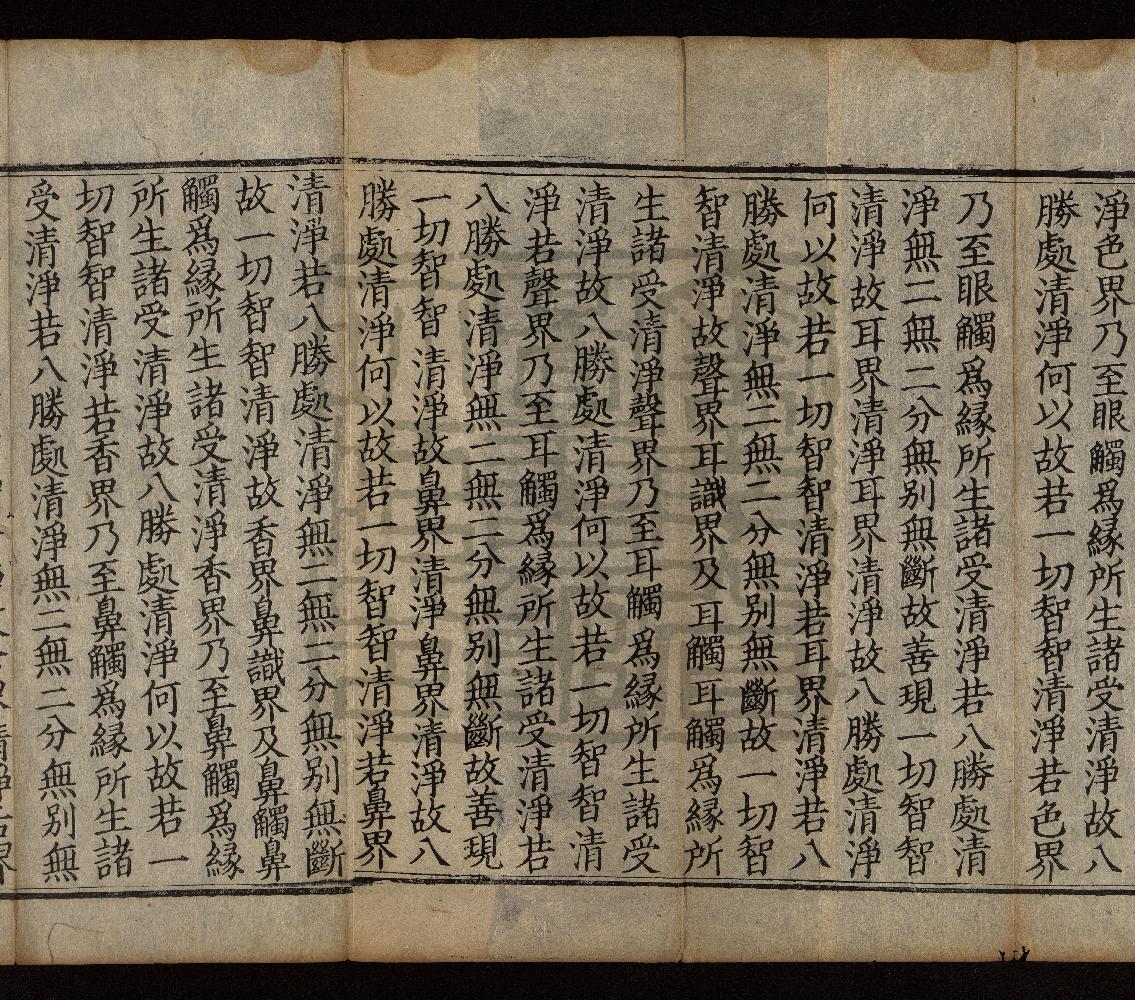 淨色界乃至眼觸爲緣所生諸受清淨故八
勝處清淨何以故若一切智智清淨若色界
乃至眼觸爲緣所生諸受清淨若八勝處清
淨無二無二分無别無斷故善現一切智智
清淨故耳界清淨耳界清淨故八勝處清淨
何以故若一切智智清淨若耳界清淨若八
勝處清淨無二無二分無别無斷故一切智
智清淨故聲界耳識界及耳觸耳觸爲緣所
生諸受清淨聲界乃至耳觸爲緣所生諸受
清淨故八勝處清淨何以故若一切智智清
淨若聲界乃至耳觸爲緣所生諸受清淨若
八勝處清淨無二無二分無别無斷故善現
一切智智清淨故鼻界清淨鼻界清淨故八
勝處清淨何以故若一切智智清淨若鼻界
清淨若八勝處清淨無二無二分無别無斷
故一切智智清淨故香界鼻識界及鼻觸鼻
觸爲緣所生諸受清淨香界乃至鼻觸爲緣
所生諸受清淨故八勝處清淨何以故若一
切智智清淨若香界乃至鼻觸爲緣所生諸
受清淨若八勝處清淨無二無二分無别無